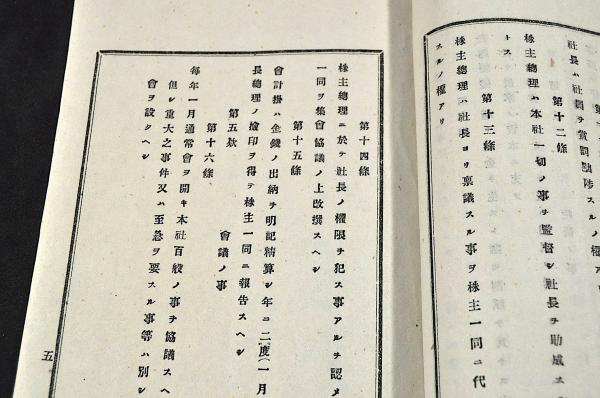 社長ハ社員ヲ賞罰黜陟スルノ權アリ
第十二條
株主總理ハ本社一切ノ事ヲ監督シ社長ヲ助成ス
トス
第十三條
株主總理ハ社長ヨリ稟議スル事ヲ株主一同ニ代
スルノ權アリ
第十四條
株主總理ニ於テ社長ノ權限ヲ犯ス事アルヲ認メ
一同ヲ集會協議ノ上改撰スヘシ
第十五條
會計掛ハ金錢ノ出納ヲ明記精算シ年ニ二度(一月
長總理ノ撿印ヲ得テ株主一同ニ報告スヘシ
第五欵 會議ノ事
第十六條
每年一月通常會ヲ開キ本社百般ノ事ヲ協議スヘ
但シ重大之事件又ハ至急ヲ要スル事等ハ別シ
會ヲ設クヘシ
五